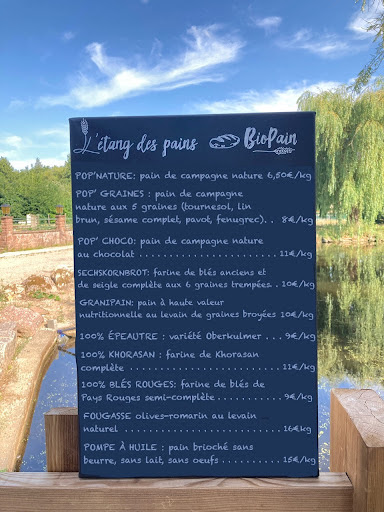 L'étang des pains BioPain
POP'NATURE: pain de campagne nature 6,50€/kg
POP' GRAINES : pain de campagne
nature aux 5 graines (tournesol, lin
brun, sésame complet, pavot, fenugrec). . 8€/kg
POP' CHOCO: pain de campagne nature
au chocolat . . . . . . . . . . . . . . . . . . . . . . 11€/kg
SECHSKORNBROT: farine de blés anciens et
de seigle complète aux 6 graines trempées. . 10€/kg
GRANIPAIN: pain à haute valeur
nutritionnelle au levain de graines broyées 10€/kg
100% ÉPEAUTRE : variété Oberkulmer . . . 9€/kg
100% KHORASAN : farine de Khorasan
complète . . . . . . . . . . . . . . . . . . . . . . . . 11€/kg
100% BLÉS ROUGES: farine de blés de
Pays Rouges semi-complète . . . . . . . . . . . . 9€/kg
FOUGASSE olives-romarin au levain
naturel . . . . . . . . . . . . . . . . . . . . . . . . . 16€kg
POMPE À HUILE : pain brioché sans
beurre, sans lait, sans oeufs . . . . . . . . . . 15€/kg